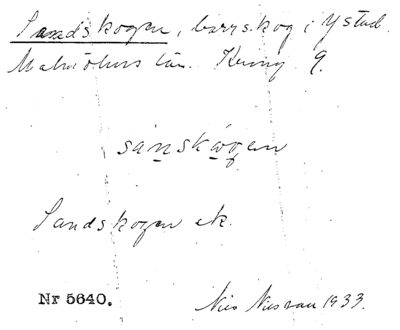 Sandskogen, barrskog i Ystad.
Malmöhus län. Kuvng 9.
sánskò̱gen
Sandskogen ek.
Nr 5640.
Nils Nilsson 1933.